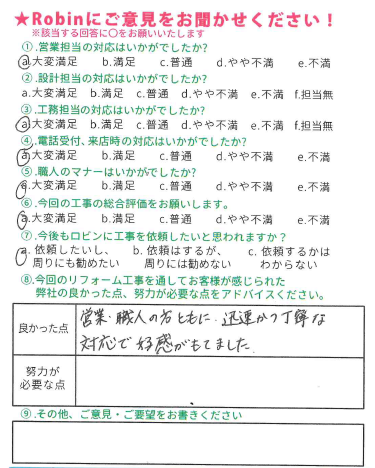 ★Robinにご意見をお聞かせください！
※該当する回答に〇をお願いいたします
①.営業担当の対応はいかがでしたか?
a.大変満足 b.満足 c.普通 d.やや不満 e.不満
②.設計担当の対応はいかがでしたか?
a.大変満足 b.満足 c.普通 d.やや不満 e.不満 f.担当無
③.工務担当の対応はいかがでしたか?
a.大変満足 b.満足 c.普通 d.やや不満 e.不満 f.担当無
④.電話受付、来店時の対応はいかがでしたか?
a.大変満足 b.満足 c.普通 d.やや不満 e.不満
⑤.職人のマナーはいかがでしたか?
a.大変満足 b.満足 c.普通 d.やや不満 e.不満
⑥.今回の工事の総合評価をお願いします。
a.大変満足 b.満足 c.普通 d.やや不満 e.不満
⑦.今後もロビンに工事を依頼したいと思われますか？
a.依頼したいし、 b.依頼はするが、 c.依頼するかは
周りにも勧めたい 周りには勧めない わからない
⑧.今回のリフォーム工事を通してお客様が感じられた
弊社の良かった点、努力が必要な点をアドバイスください。
良かった点
営業・職人の方ともに、迅速かつ丁寧な
対応で好感がもてました。
努力が
必要な点
⑨.その他、ご意見・ご要望をお書きください